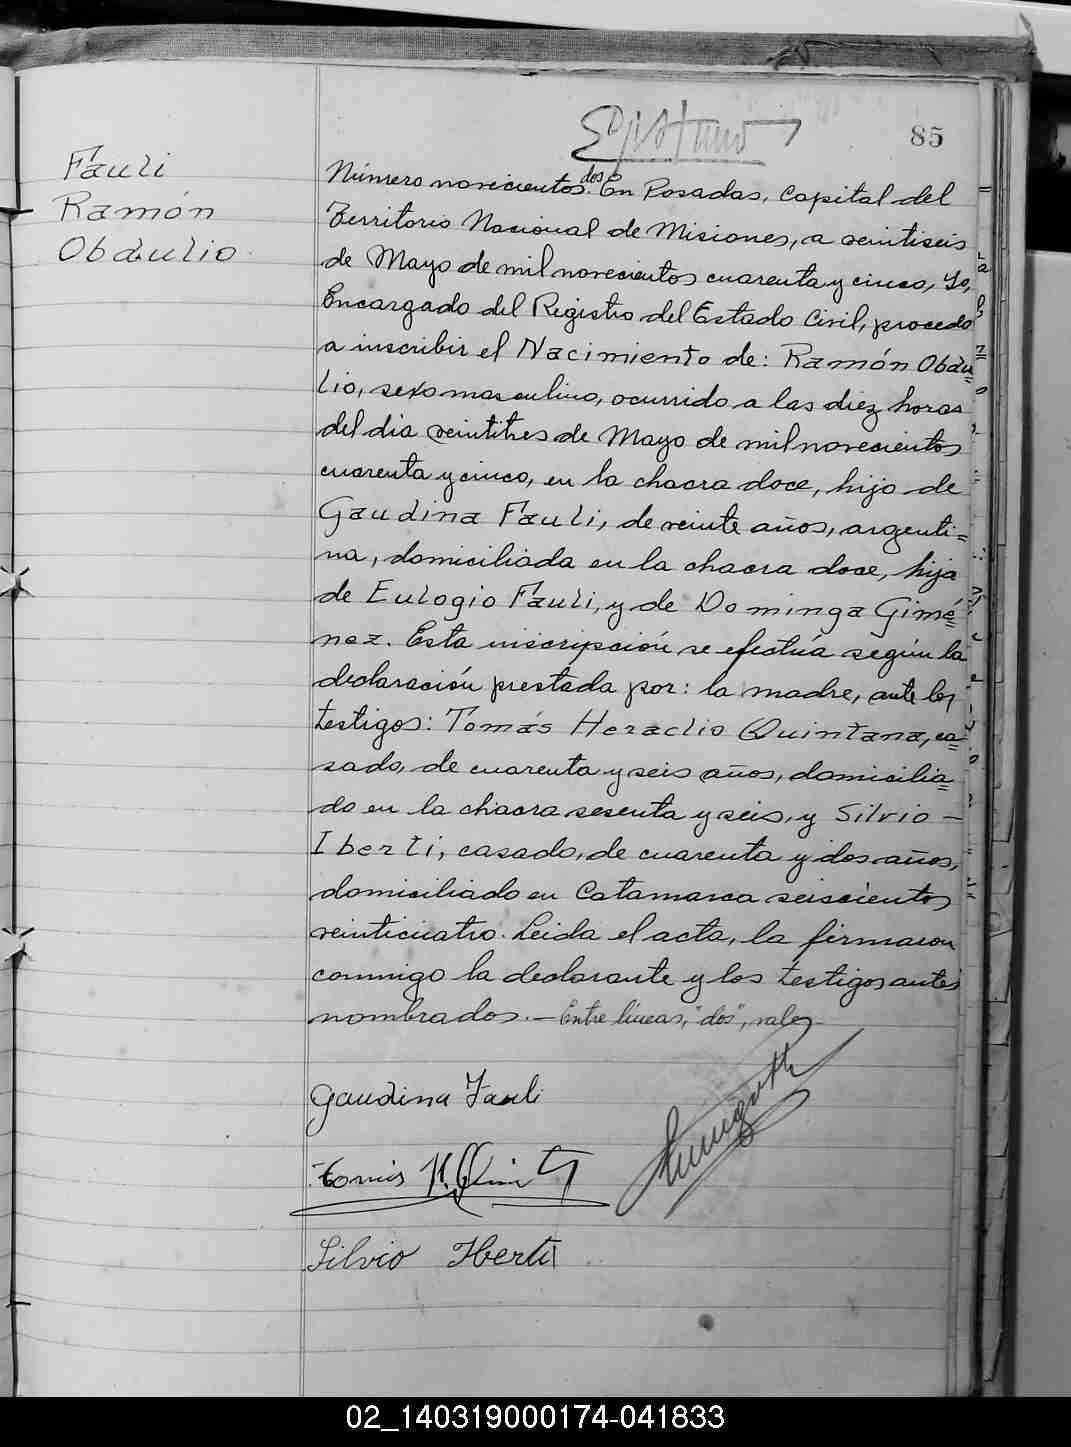 85
Fauli
Ramón
Obdulio.
Número novecientos dos. En Posadas, Capital del
Territorio Nacional de Misiones, a veintiseis
de Mayo de mil novecientos cuarenta y cinco, Yo,
Encargado del Registro del Estado Civil, procedo
a inscribir el Nacimiento de: Ramón Obdu=
lio, sexo masculino, ocurrido a las diez horas
del dia veintitres de Mayo de mil novecientos
cuarenta y cinco, en la chacra doce, hijo de
Gaudina Fauli, de veinte años, argenti=
na, domiciliada en la chacra doce, hija
de Eulogio Fauli, y de Dominga Gimé=
nez. Esta inscripción se efectúa según la
declaración prestada por: la madre, ante los
testigos: Tomás Heraclio Quintana, ca=
sado, de cuarenta y seis años, domicilia=
do en la chacra sesenta y seis, y Silvio —
Iberti, casado, de cuarenta y dos años,
domiciliado en Catamarca seiscientos
veinticuatro. Leida el acta, la firmaron
conmigo la declarante y los testigos antes
nombrados. — Entre líneas, "dos", vale.
Gaudina Fauli
Tomás H. Quint
Silvio Iberti
02_140319000174-041833